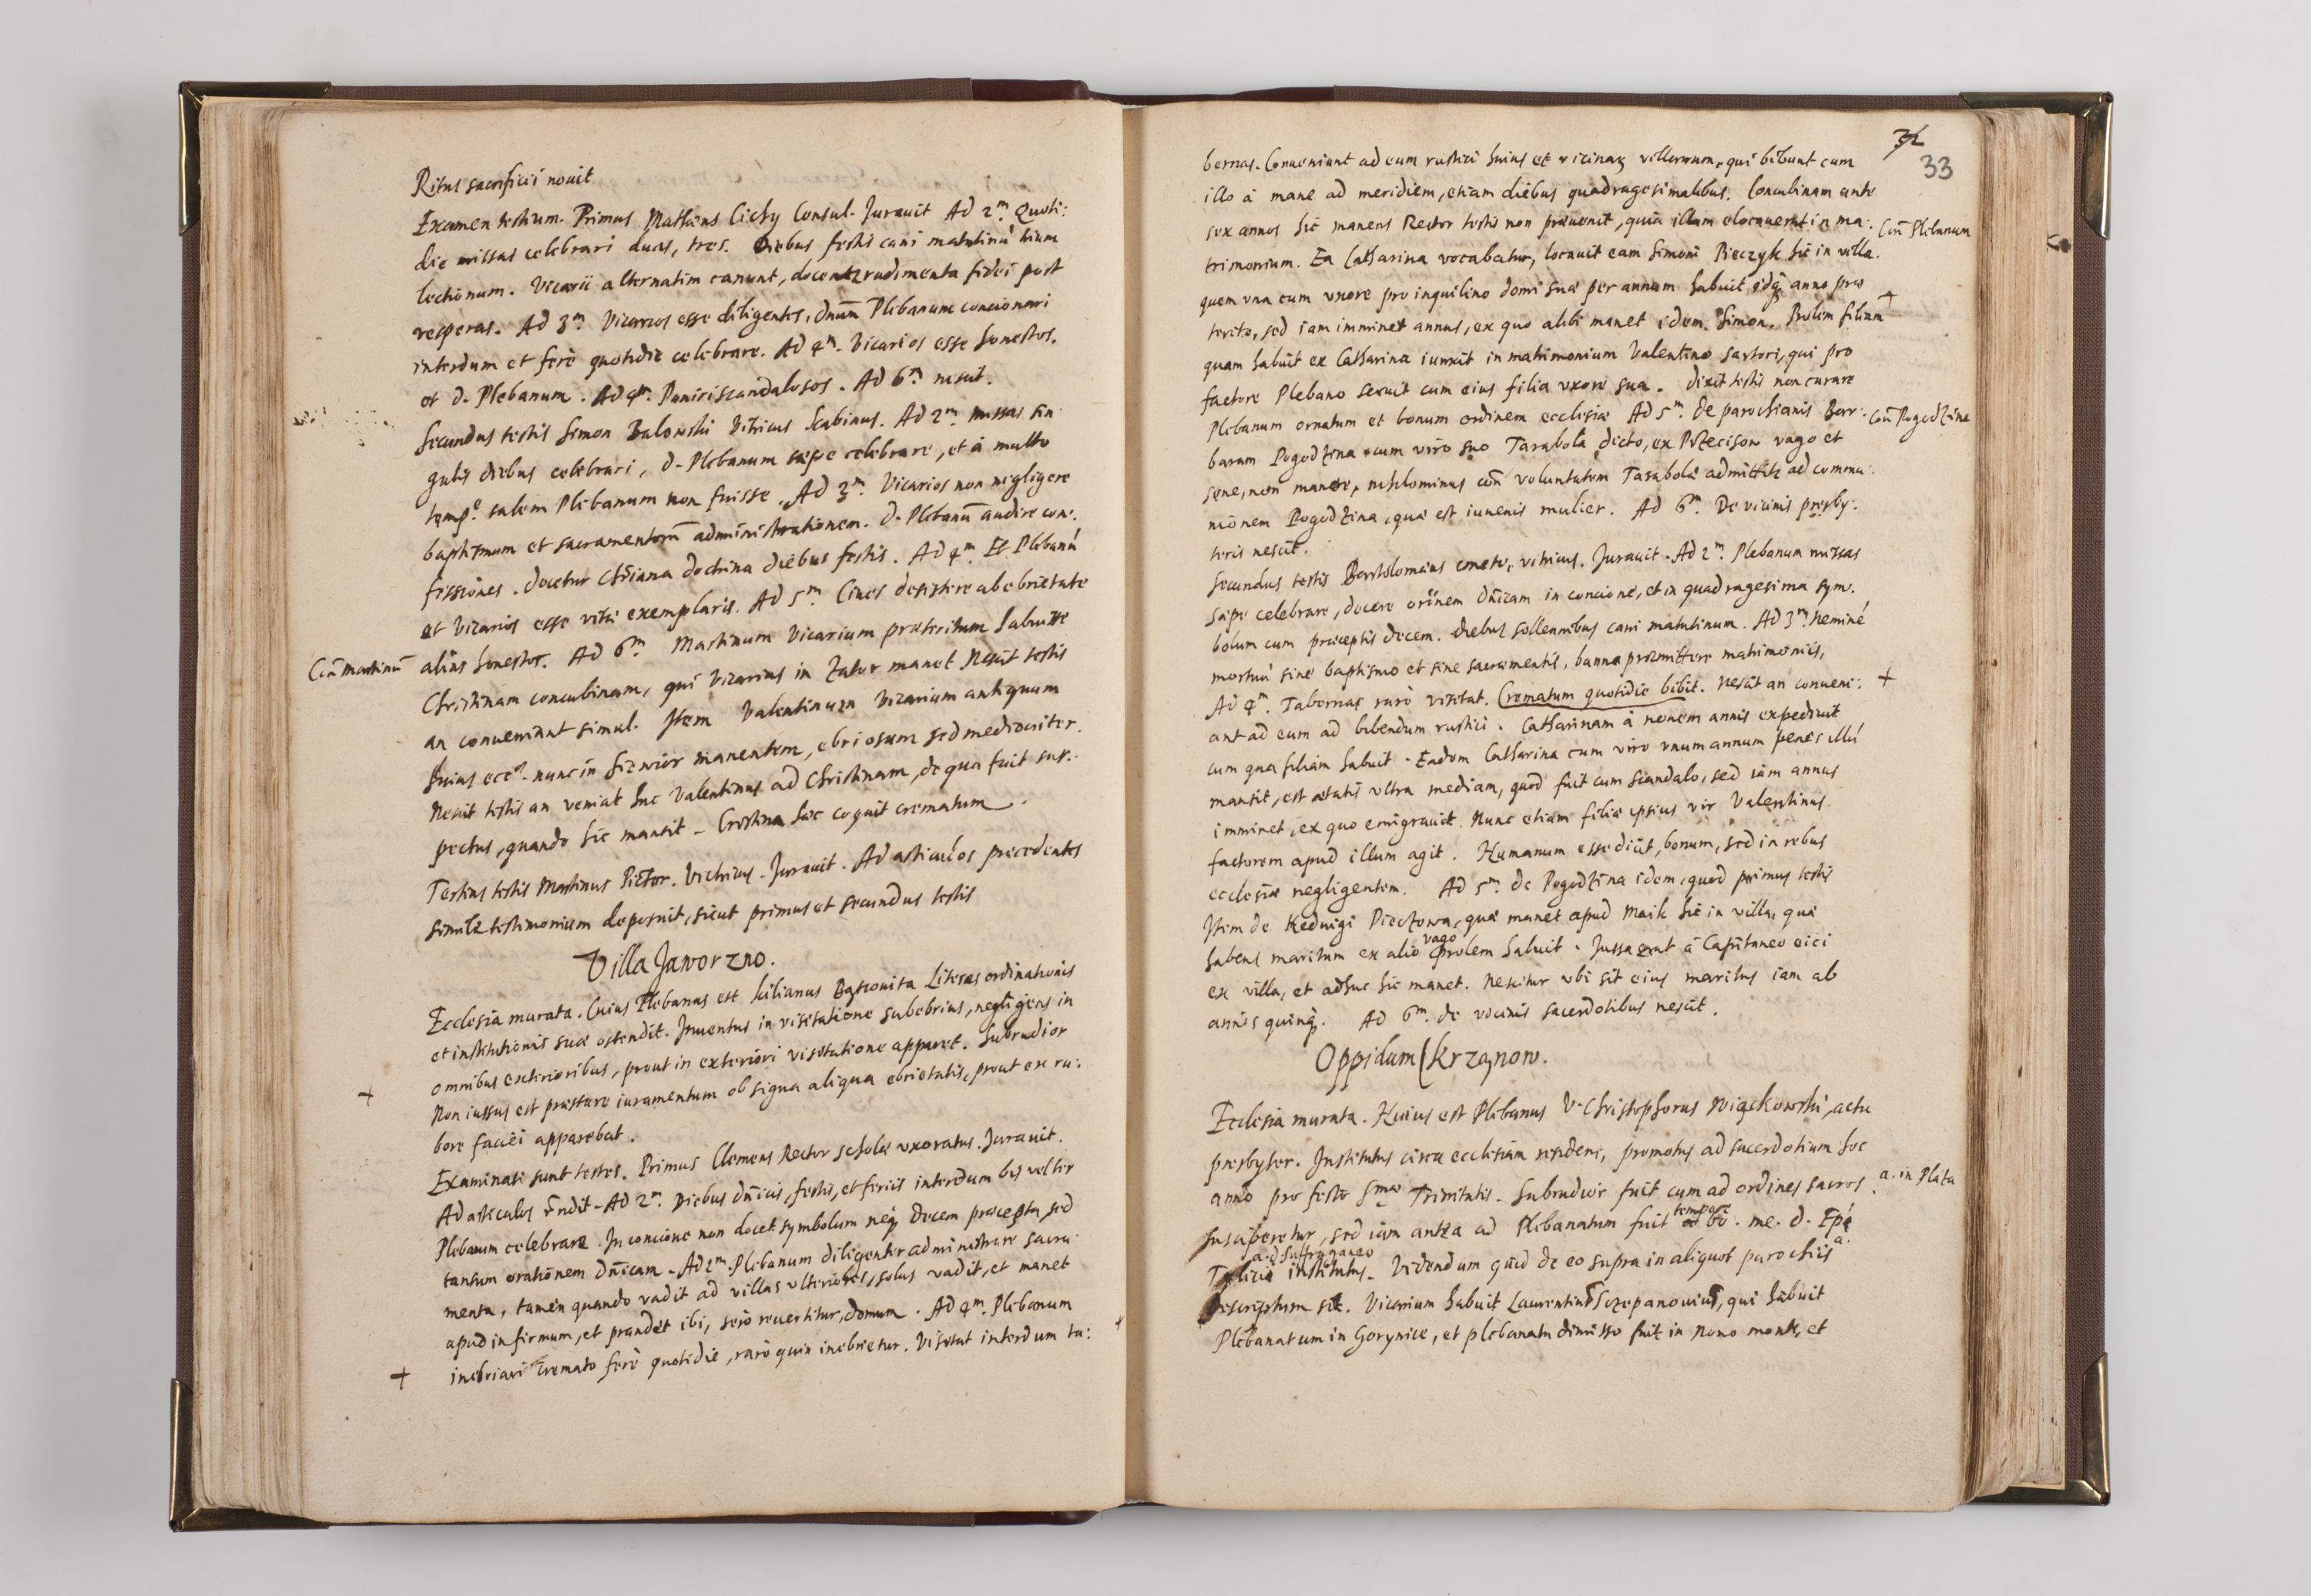 Ritus sacrificii novit
Examen testium. Primus Mathaeus Cichy Consul. Juravit Ad 2m. Quoti:
die missas celebrari duas, tres. Diebus festis cani matutinū trium
lectionum. Vicarii alternatim canunt, docent rudimenta fidei post
vesperas. Ad 3m. Vicarios esse diligentes, dnūm Plebanum concionari
interdum et ferè quotidie celebrare. Ad 4m. Vicarios esse honestos.
et d. Plebanum. Ad 4m. Puniri scandalosos. Ad 6m. nescit.
Secundus testis Simon Balowski Vitricus Scabinus. Ad 2m. missas sin
gulis diebus celebrari, d. Plebanum saepe celebrare, et à multo
tempe talem Plebanum non fuisse. Ad 3m. Vicarios non negligere
baptismum et sacramentorū administrationem. d. Plebanū audire con:
fessiones. docetur Chr̄iana doctrina diebus festis. Ad 4m. Et Plebanū
et Vicarios esse vitae exemplaris. Ad 5m. Cives desistere ab ebrietate
Cōn Martinū
alias honestos. Ad 6m. Martinum Vicarium praeteritum habuisse
Christinam concubinam, qui Vicarius in Zator manet Nescit testis
an conveniant simul. Item Valentinum Vicarium antiquum
huius eccl. nunc in manentem, ebriosum sed mediocriter.
Nescit testis an veniat huc Valentinus ad Christinam, de qua fuit sus:
pectus, quando hic mansit. Cristina hic coquit crematum.
Tertius testis Martinus Pictor. Vitricus. Juravit. Ad articulos precedentes
simile testimonium deposuit, sicut primus et secundus testis
Villa Jaworzno.
Ecclesia murata. Cuius Plebanus est Kilianus Literas ordinationis
et institutionis suae ostendit. Inventus in visitatione subebrius, negligens in
omnibus exterioribus, prout in exteriori visitatione apparet. Subrudior
+
Non iussus est praestare iuramentum ob signa aliqua ebrietatis, prout ex ru:
bore faciei apparebat.
Examinati sunt testes. Primus Clemens Rector scholae uxoratus. Juravit.
Ad articulos r̄ndit. Ad 2m. Diebus dn̄icis, festis, et feriis interdum bis vel ter
Plebanum celebrare. In concione non docet symbolum neq decem praecepta sed
tantum orationem dn̄icam. Ad 2m. Plebanum diligenter administrare sacra:
menta, tamen quando vadit ad villas ulteriores, solus vadit, et manet
apud infirmum, et prandet ibi, sero revertitur domum. Ad 4m. Plebanum
+
inebriari cremato ferè quotidie, raro quin inebrietur. Visitat interdum ta:
32
33
bernas. Conveniunt ad eum rustici huius et vicinar villarum, qui bibunt cum
illo à mane ad meridiem, etiam diebus quadragesimalibus. Concubinam ante
sex annos hic manens Rector testis non praevenit, quia illam elocaverat in ma:
Cōn Plebanum
trimonium. Ea Catharina vocabatur, locavit eam Simoni Pieczyk hic in villa.
quem una cum uxore pro inquilino domi suae per annum habuit idq anno prae
+
terito, sed iam imminet annus, ex quo alibi manet idem Simon. Prolem filiam
quam habuit ex Catharina iunxit in matrimonium Valentino sartori, qui pro
factore Plebano servit cum eius filia uxore sua. dixit testis non curare
Plebanum ornatum et bonum ordinem ecclesiae Ad 5m. de parochianis Bar:
Cōn Pogodzina
baram Pogodzina cum viro suo Tarabola dicto, ex vago et
sene, non manere, nihilominus con voluntatem Tarabola admittit ad commu:
nionem Pogodzina, quae est iuvenis mulier. Ad 6m. De vicinis presby:
teris nescit.
Secundus testis Bartholomaeus cmeto, vitricus. Juravit. Ad 2m. Plebanum missas
saepe celebrare, docere or̄onem dn̄icam in concione, et in quadragesima sym.
bolum cum praeceptis decem. diebus sollennibus cani matutinum. Ad 3m. Neminē
mortuū sine baptismo et sine sacramentis, banna praemittere matrimoniis,
Ad 4m. Tabernas rarò visitat. Crematum quotidie bibit. Nescit an conveni:
+
ant ad eum ad bibendum rustici. Catharinam à novem annis expedivit
cum qua filiam habuit. Eadem Catharina cum viro unum annum penes illū
mansit, est aetatis ultra mediam, quod fuit cum scandalo, sed iam annus
imminet, ex quo emigravit. Nunc etiam filiae ipsius vir Valentinus
factorem apud illum agit. Humanum esse dixit, bonum, sed in rebus
ecclesiae negligentem. Ad 5m. de Pogodzina idem, quod primus testis
Item de Heduigi Pieczowa, quae manet apud Maik hic in villa, quae
habens maritum ex alio vago prolem habuit. Jussa erat à Capitaneo eici
ex villa, et adhuc hic manet. Nescitur ubi sit eius maritus iam ab
annis quinq. Ad 6m. de vicinis sacerdotibus nescit.
Oppidum Krzanow.
Ecclesia murata. Huius est Plebanus V. Christophorus Wiąckowski, actu
presbyter. Institutus circa ecclesiam residens, promotus ad sacerdotium hoc
anno pro festo Smae Trinitatis. Subrudior fuit cum ad ordines sacros
a. in Plata
susciperetur, sed iam antea ad Plebanatum fuit tempore bo. me. d. Epi
a d. Suffraganeo
institutus. Videndum quid de eo supra in aliquot parochiis
descriptum sit. Vicarium habuit Laurentium Sczepanovium, qui habuit
Plebanatum in Gorynice, et plebanatu dimisso fuit in Novo monte, et